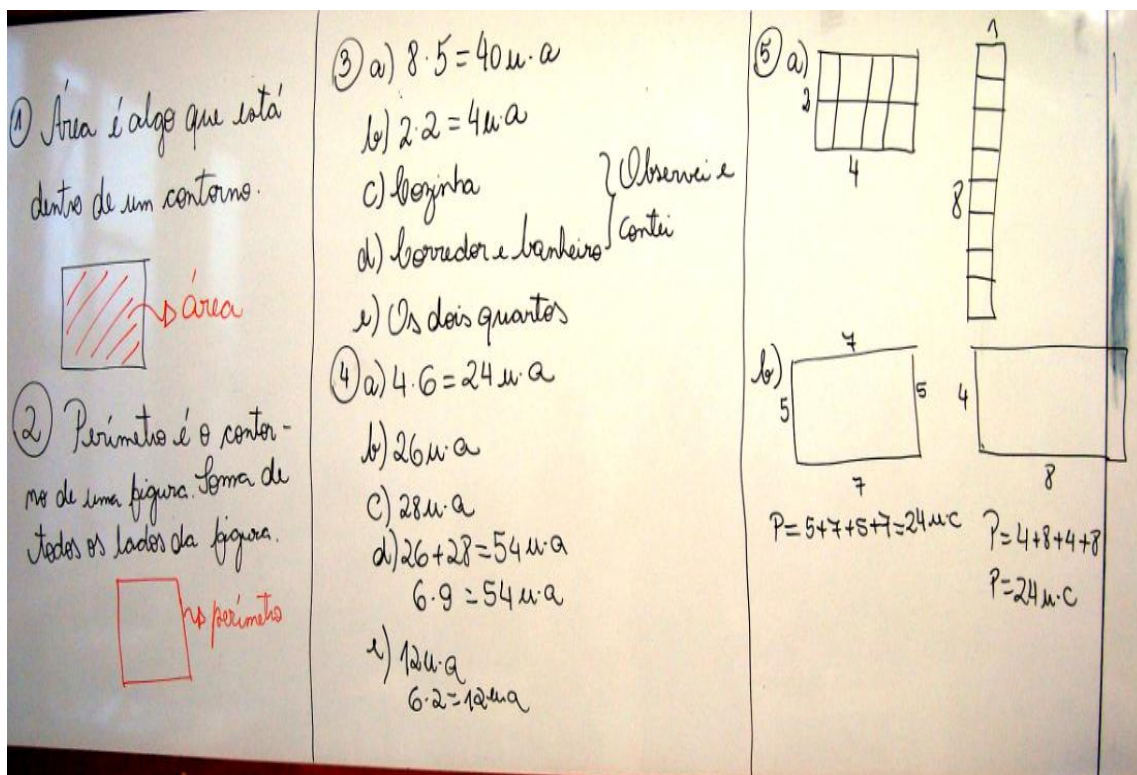 ① Área é algo que está
dentro de um contorno.
área
② Perímetro é o contor-
no de uma figura. Soma de
todos os lados da figura.
perímetro
③ a) 8·5=40u·a
b) 2·2=4u·a
c) Cozinha
d) Corredor e banheiro
Observei e
contei
e) Os dois quartos
④ a) 4·6=24u·a
b) 26u·a
c) 28u·a
d) 26+28=54u·a
6·9=54u·a
e) 12u·a
6·2=12u·a
⑤ a)
2
4
1
8
b)
7
5
5
7
P=5+7+5+7=24u·c
4
8
P=4+8+4+8
P=24u·c